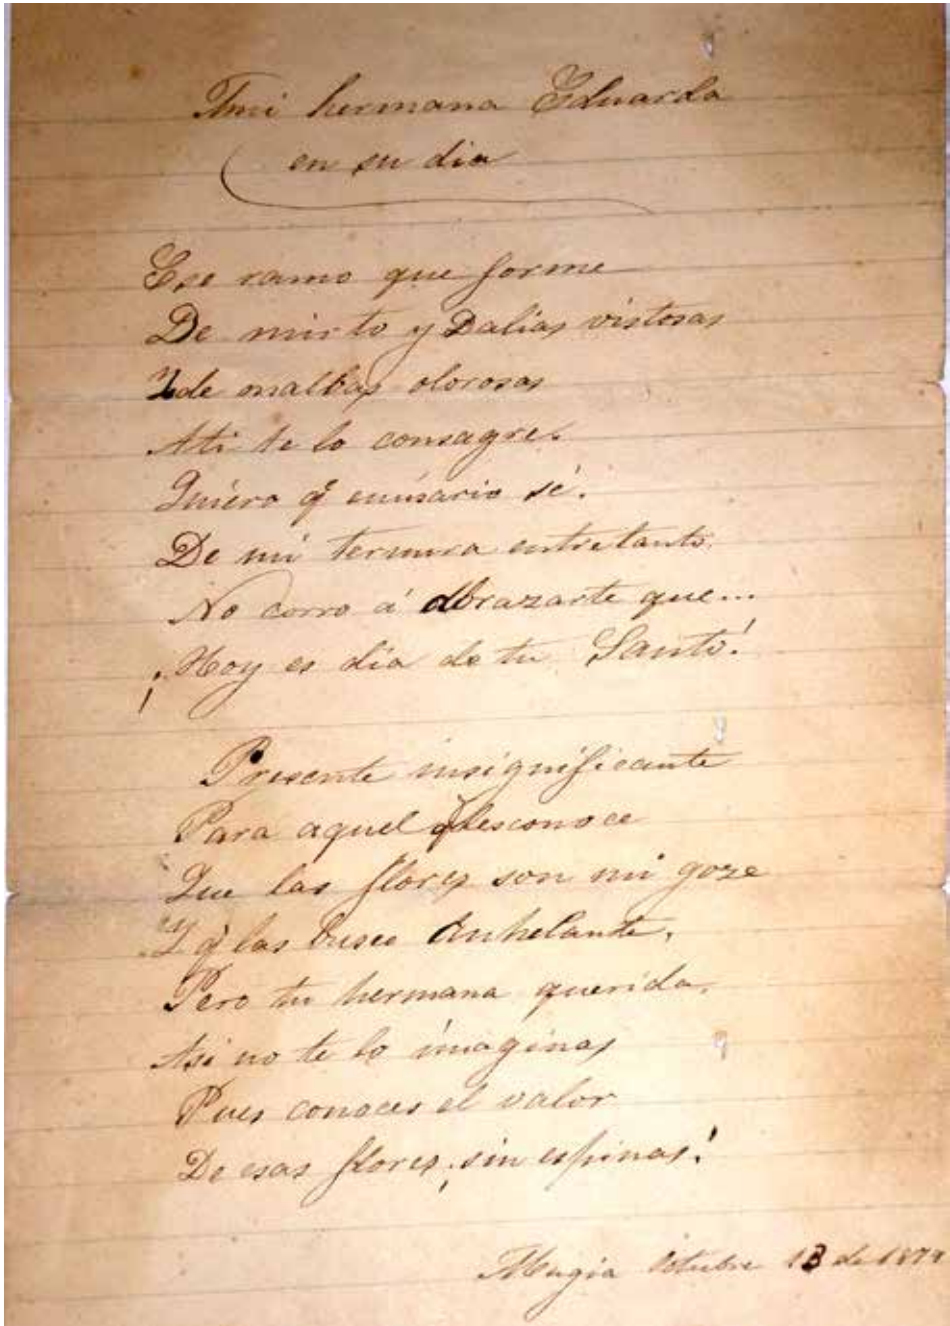 Ami hermana Eduarda
en su dia
Ese ramo que forme
De mirto y Dalias vistosas
Y de malbas olorosas
Ati te lo consagre.
Quiero q̃ emisario sé.
De mi ternura entretanto.
No corro á Abrazarte que...
¡Hoy es día de tu Santo!
Presente insignificante
Para aquel q̃ desconoce
Que las flores son mi goze
Y q̃ las busco Anhelante.
Pero tu hermana querida.
Asi no te lo imaginas
Pues conoces el valor
De esas flores ¡sin espinas!
Mugia Octubre 13 de